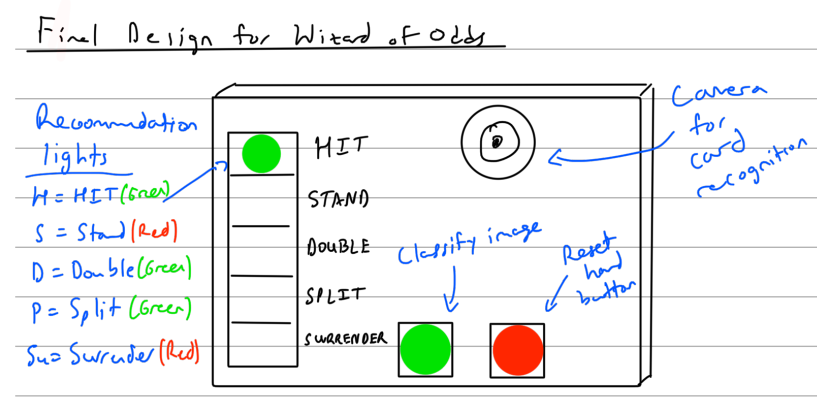 Final Design for Wizard of Odds
Recommendation
lights
H = HIT (Green)
S = Stand (Red)
D = Double (Green)
P = Split (Green)
Su = Surrender (Red)
HIT
STAND
DOUBLE
SPLIT
SURRENDER
Camera
for
card
recognition
Classify image
Reset
hand
button